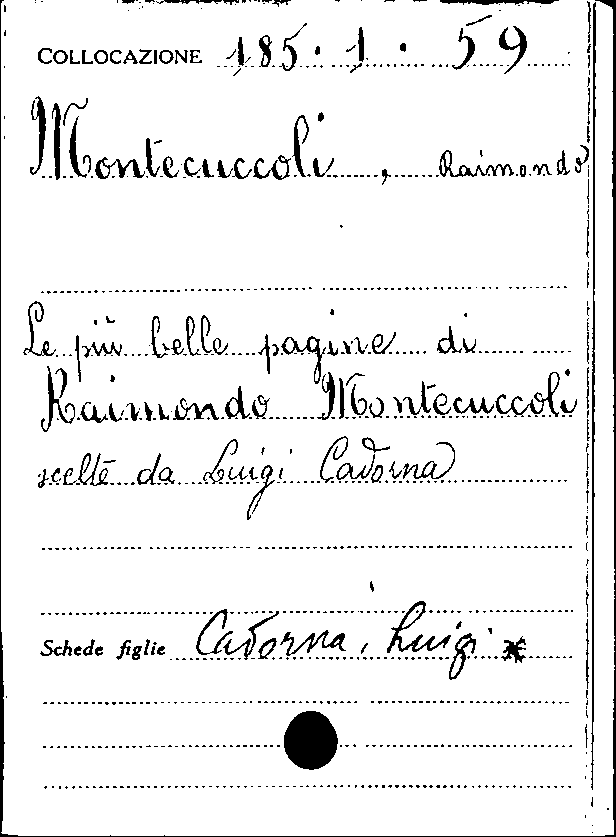 COLLOCAZIONE 185.1.59
Montecuccoli, Raimondo
Le più belle pagine di
Raimondo Montecuccoli
scelte da Luigi Cadorna
Schede figlie Cadorna, Luigi *